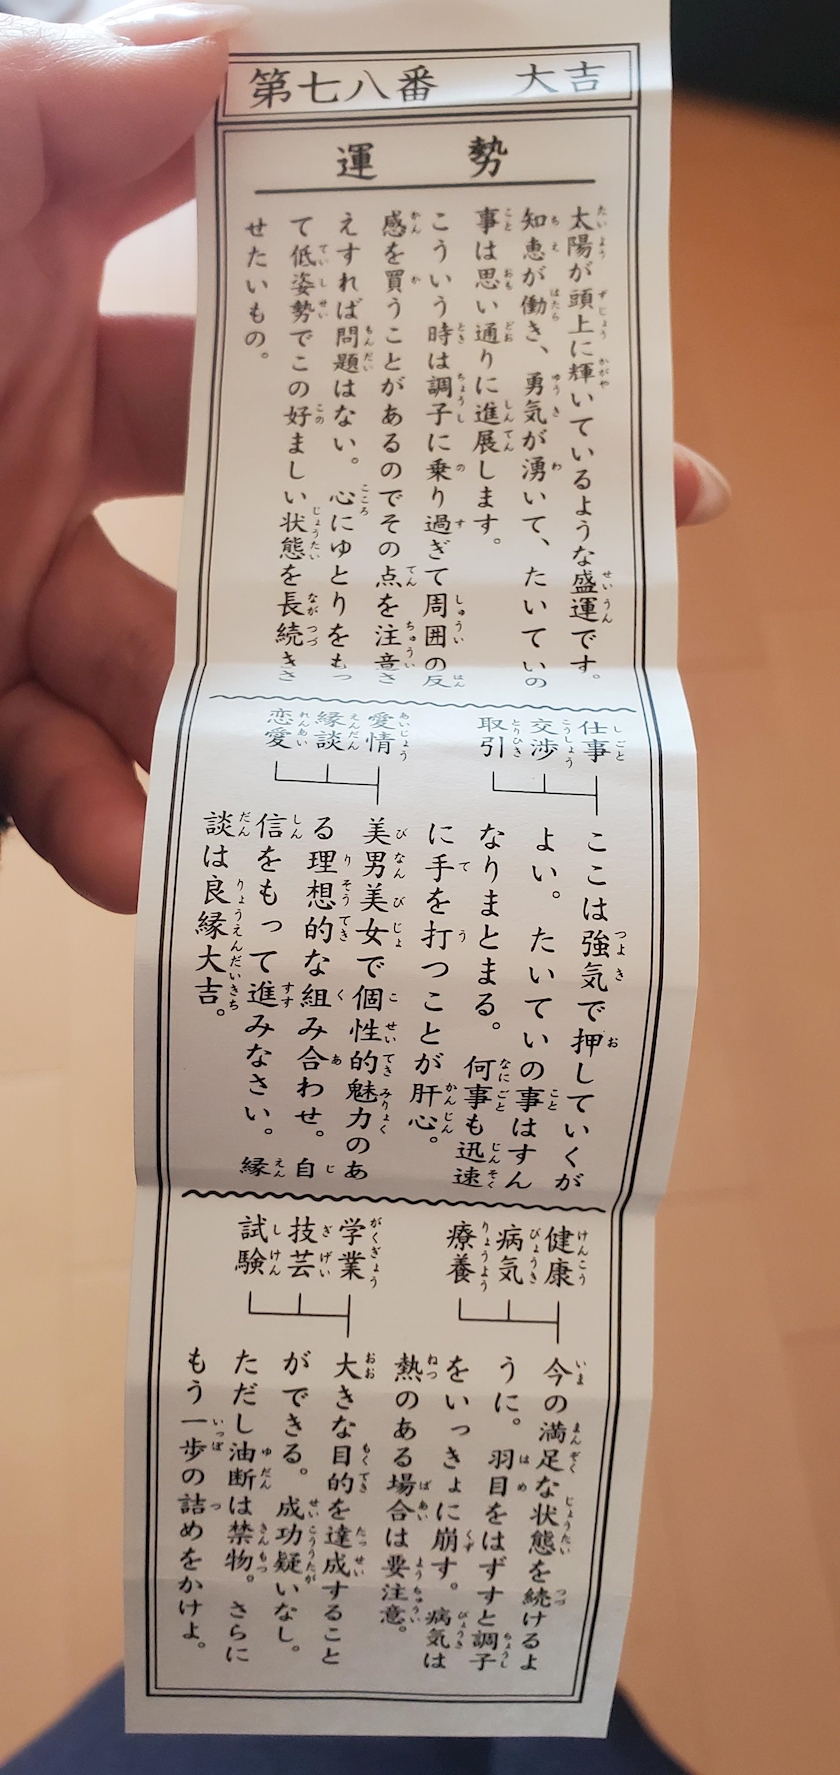 第七八番 大吉
運勢
太陽が頭上に輝いているような盛運です。
知恵が働き、勇気が湧いて、たいていの
事は思い通りに進展します。
こういう時は調子に乗り過ぎて周囲の反
感を買うことがあるのでその点を注意さ
えすれば問題はない。心にゆとりをもっ
て低姿勢でこの好ましい状態を長続きさ
せたいもの。
仕事
交渉
取引
ここは強気で押していくが
よい。たいていの事はすん
なりまとまる。何事も迅速
に手を打つことが肝心。
愛情
縁談
恋愛
美男美女で個性的魅力のあ
る理想的な組み合わせ。自
信をもって進みなさい。縁
談は良縁大吉。
健康
病気
療養
今の満足な状態を続けるよ
うに。羽目をはずすと調子
をいっきょに崩す。病気は
熱のある場合は要注意。
学業
技芸
試験
大きな目的を達成すること
ができる。成功疑いなし。
ただし油断は禁物。さらに
もう一歩の詰めをかけよ。